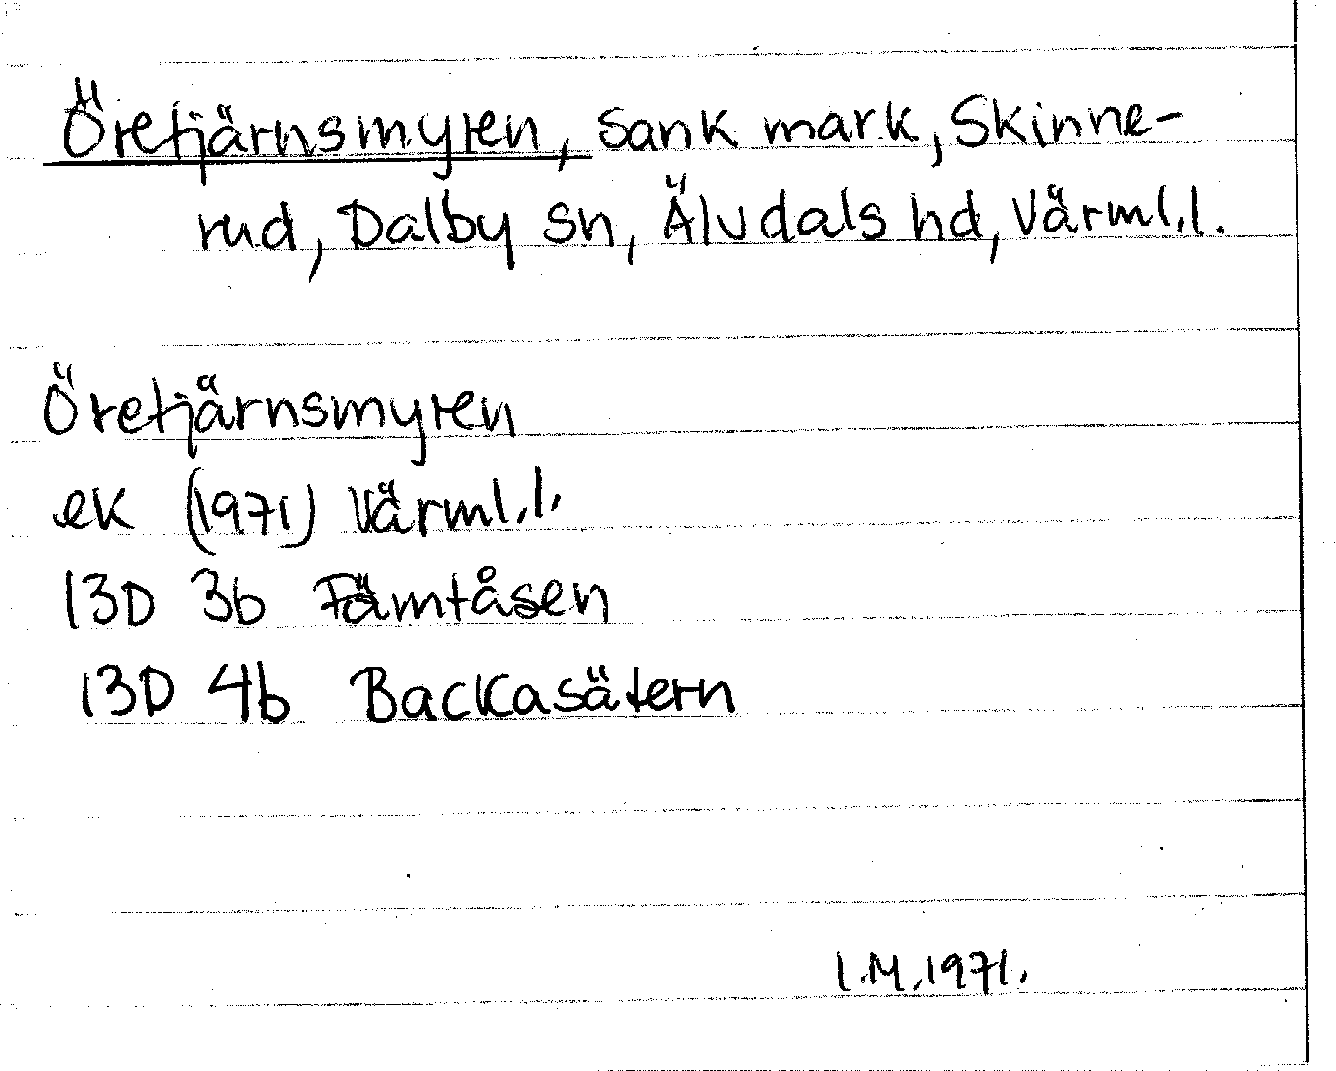 Öretjärnsmyren, sank mark, Skinne-
rud, Dalby sn, Älvdals hd, Värml.l.
Öretjärnsmyren
ek (1971) Värml.l.
13D 3b Fämtåsen
13D 4b Backasätern
I.M.1971.